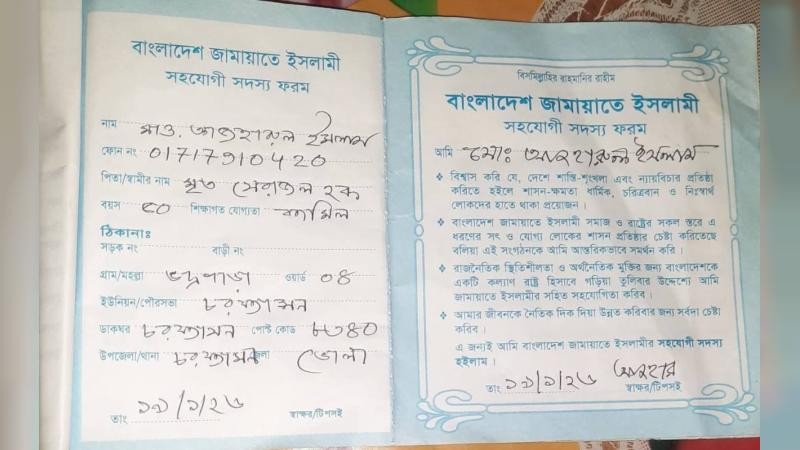 বাংলাদেশ জামায়াতে ইসলামী
সহযোগী সদস্য ফরম
নাম মাও. আজহারুল ইসলাম
ফোন নং 01717910420
পিতা/স্বামীর নাম মৃত সেরাজল হক
বয়স ৫০ শিক্ষাগত যোগ্যতা কামিল
ঠিকানাঃ
সড়ক নং বাড়ী নং
গ্রাম/মহল্লা ভদ্রপাড়া ওয়ার্ড ০৪
ইউনিয়ন/পৌরসভা চরফ্যাসন
ডাকঘর চরফ্যাসন পোস্ট কোড ৮৩৪০
উপজেলা/থানা চরফ্যাসন জেলা ভোলা
তাং ১৯/১/২৬ স্বাক্ষর/টিপসই
বিসমিল্লাহির রাহমানির রাহীম
বাংলাদেশ জামায়াতে ইসলামী
সহযোগী সদস্য ফরম
আমি মোঃ আজহারুল ইসলাম
❖ বিশ্বাস করি যে, দেশে শান্তি-শৃংখলা এবং ন্যায়বিচার প্রতিষ্ঠা
করিতে হইলে শাসন-ক্ষমতা ধার্মিক, চরিত্রবান ও নিঃস্বার্থ
লোকদের হাতে থাকা প্রয়োজন।
❖ বাংলাদেশ জামায়াতে ইসলামী সমাজ ও রাষ্ট্রের সকল স্তরে এ
ধরণের সৎ ও যোগ্য লোকের শাসন প্রতিষ্ঠার চেষ্টা করিতেছে
বলিয়া এই সংগঠনকে আমি আন্তরিকভাবে সমর্থন করি।
❖ রাজনৈতিক স্থিতিশীলতা ও অর্থনৈতিক মুক্তির জন্য বাংলাদেশকে
একটি কল্যাণ রাষ্ট্র হিসাবে গড়িয়া তুলিবার উদ্দেশ্যে আমি
জামায়াতে ইসলামীর সহিত সহযোগিতা করিব।
❖ আমার জীবনকে নৈতিক দিক দিয়া উন্নত করিবার জন্য সর্বদা চেষ্টা
করিব।
এ জন্যই আমি বাংলাদেশ জামায়াতে ইসলামীর সহযোগী সদস্য
হইলাম।
আজহার
তাং ১৯/১/২৬ স্বাক্ষর/টিপসই